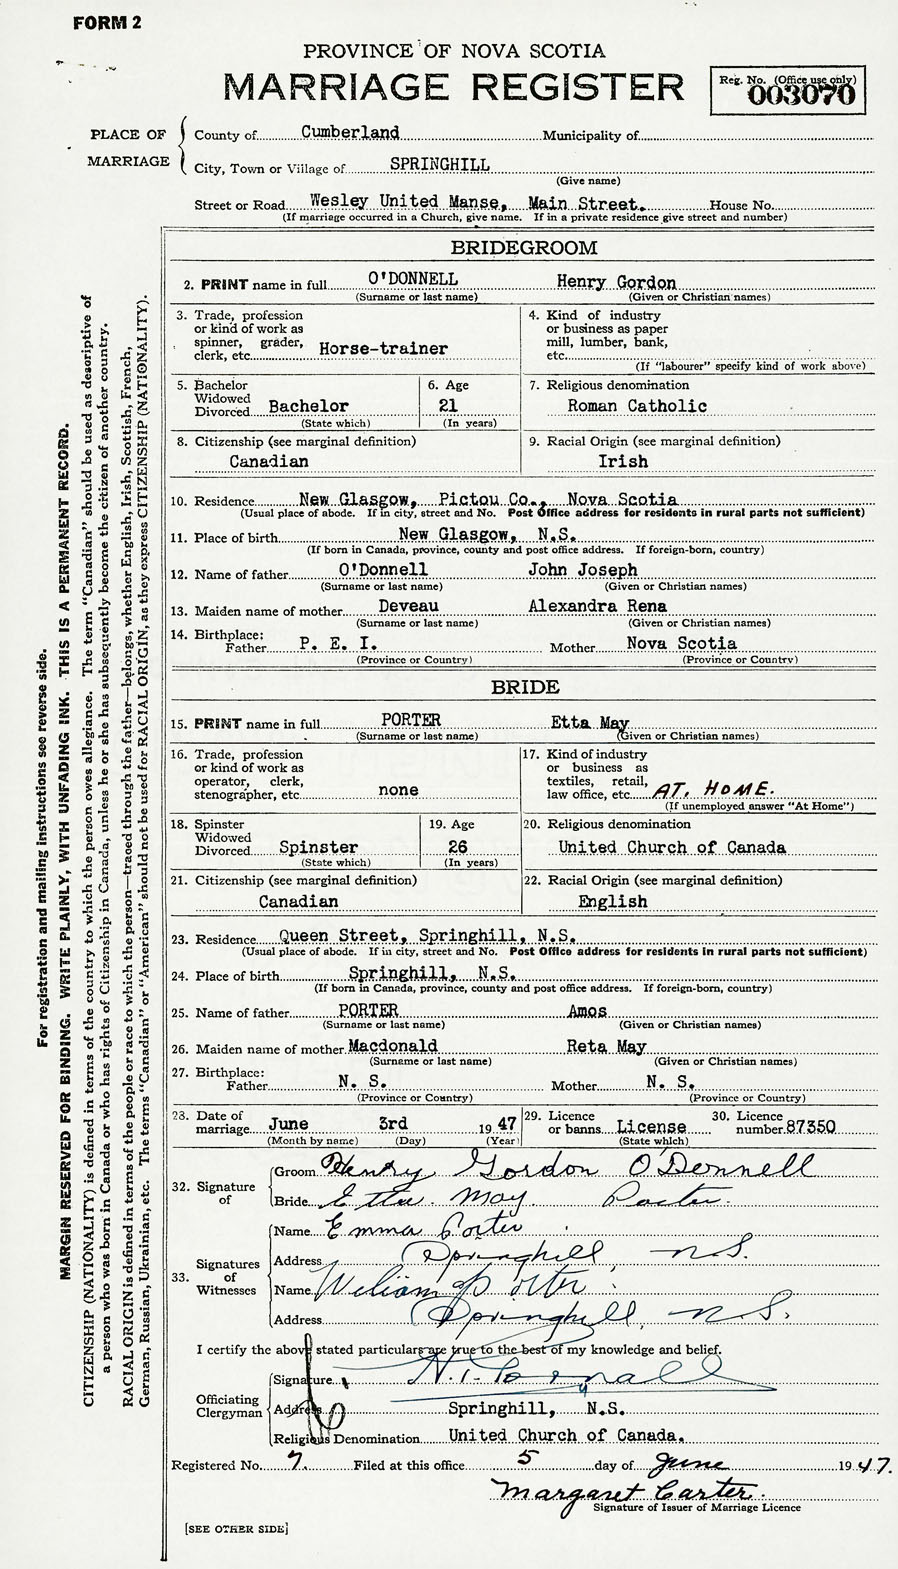 FORM 2
PROVINCE OF NOVA SCOTIA
MARRIAGE REGISTER
Reg. No. (Office use only)
003070
PLACE OF MARRIAGE
County of Cumberland Municipality of
City, Town or Village of SPRINGHILL
(Give name)
Street or Road Wesley United Manse, Main Street. House No.
(If marriage occurred in a Church, give name. If in a private residence give street and number)
BRIDEGROOM
2. PRINT name in full O'DONNELL Henry Gordon
(Surname or last name) (Given or Christian names)
3. Trade, profession
or kind of work as
spinner, grader,
clerk, etc. Horse-trainer
4. Kind of industry
or business as paper
mill, lumber, bank,
etc.
(If "labourer" specify kind of work above)
5. Bachelor
Widowed
Divorced Bachelor
(State which)
6. Age
21
(In years)
7. Religious denomination
Roman Catholic
8. Citizenship (see marginal definition)
Canadian
9. Racial Origin (see marginal definition)
Irish
10. Residence New Glasgow, Pictou Co., Nova Scotia
(Usual place of abode. If in city, street and No. Post Office address for residents in rural parts not sufficient)
11. Place of birth New Glasgow, N.S.
(If born in Canada, province, county and post office address. If foreign-born, country)
12. Name of father O'Donnell John Joseph
(Surname or last name) (Given or Christian names)
13. Maiden name of mother Deveau Alexandra Rena
(Surname or last name) (Given or Christian names)
14. Birthplace:
Father P. E. I. Mother Nova Scotia
(Province or Country) (Province or Country)
BRIDE
15. PRINT name in full PORTER Etta May
(Surname or last name) (Given or Christian names)
16. Trade, profession
or kind of work as
operator, clerk,
stenographer, etc. none
17. Kind of industry
or business as
textiles, retail,
law office, etc. AT. HOME.
(If unemployed answer "At Home")
18. Spinster
Widowed
Divorced Spinster
(State which)
19. Age
26
(In years)
20. Religious denomination
United Church of Canada
21. Citizenship (see marginal definition)
Canadian
22. Racial Origin (see marginal definition)
English
23. Residence Queen Street, Springhill, N.S.
(Usual place of abode. If in city, street and No. Post Office address for residents in rural parts not sufficient)
24. Place of birth Springhill, N.S.
(If born in Canada, province, county and post office address. If foreign-born, country)
25. Name of father PORTER Amos
(Surname or last name) (Given or Christian names)
26. Maiden name of mother Macdonald Reta May
(Surname or last name) (Given or Christian names)
27. Birthplace:
Father N. S. Mother N. S.
(Province or Country) (Province or Country)
28. Date of
marriage June 3rd 1947
(Month by name) (Day) (Year)
29. Licence
or banns License
(State which)
30. Licence
number 87350
32. Signature of
Groom Henry Gordon O'Donnell
Bride Etta May Porter.
33. Signatures of Witnesses
Name Emma Porter
Address Springhill, N.S.
Name William Porter
Address Springhill, N.S.
I certify the above stated particulars are true to the best of my knowledge and belief.
Officiating Clergyman
Signature
Address Springhill, N.S.
Religious Denomination United Church of Canada.
Registered No. 7. Filed at this office 5 day of June 1947.
Margaret Carter.
Signature of Issuer of Marriage Licence
[SEE OTHER SIDE]
For registration and mailing instructions see reverse side.
MARGIN RESERVED FOR BINDING. WRITE PLAINLY, WITH UNFADING INK. THIS IS A PERMANENT RECORD.
CITIZENSHIP (NATIONALITY) is defined in terms of the country to which the person owes allegiance. The term "Canadian" should be used as descriptive of
a person who was born in Canada or who has rights of Citizenship in Canada, unless he or she has subsequently become the citizen of another country.
RACIAL ORIGIN is defined in terms of the people or race to which the person—traced through the father—belongs, whether English, Irish, Scottish, French,
German, Russian, Ukrainian, etc. The terms "Canadian" or "American" should not be used for RACIAL ORIGIN, as they express CITIZENSHIP (NATIONALITY).